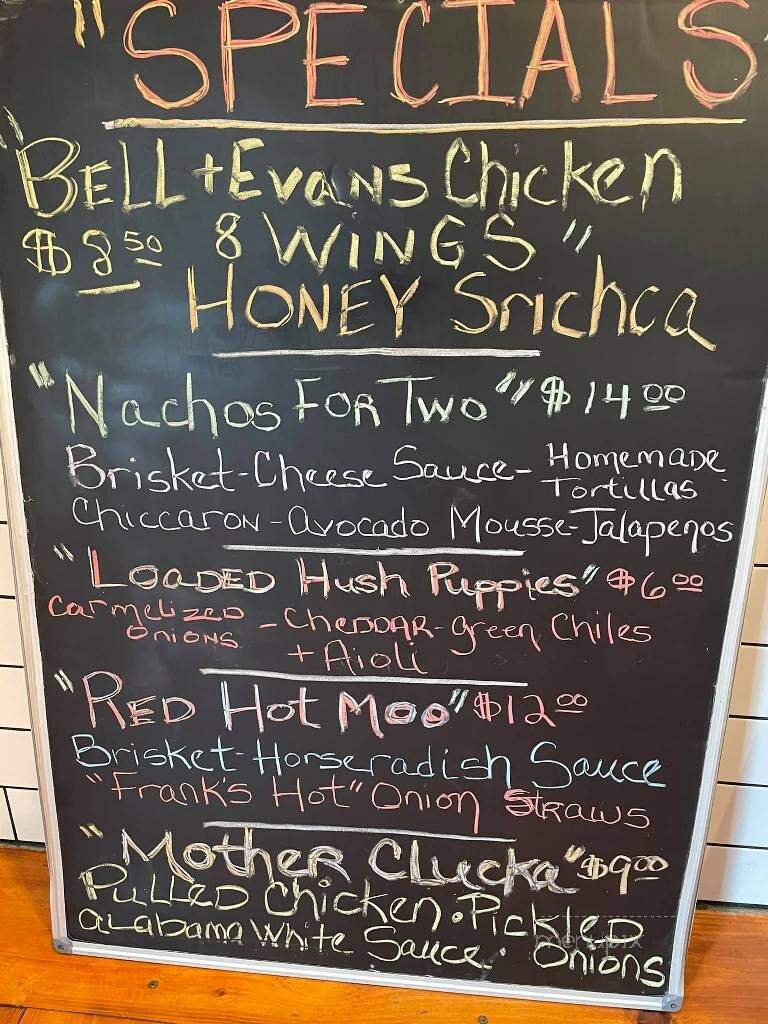 "SPECIALS
"BELL + Evans Chicken
$8.50 8 WINGS"
HONEY Srichca
"Nachos FOR Two" $14.00
Brisket-Cheese Sauce- Homemade
Tortillas
Chiccaron-avocado Mousse-Jalapenos
"LOADED Hush Puppies" $6.00
Carmelized
ONIONS - CHEDDAR-green Chiles
+ Aioli
"RED Hot Moo" $12.00
Brisket-Horseradish Sauce
"Frank's Hot" Onion STRAWS
"Mother Clucka" $9.00
PULLED Chicken • Pickled
alabama White Sauce • Onions
menupix